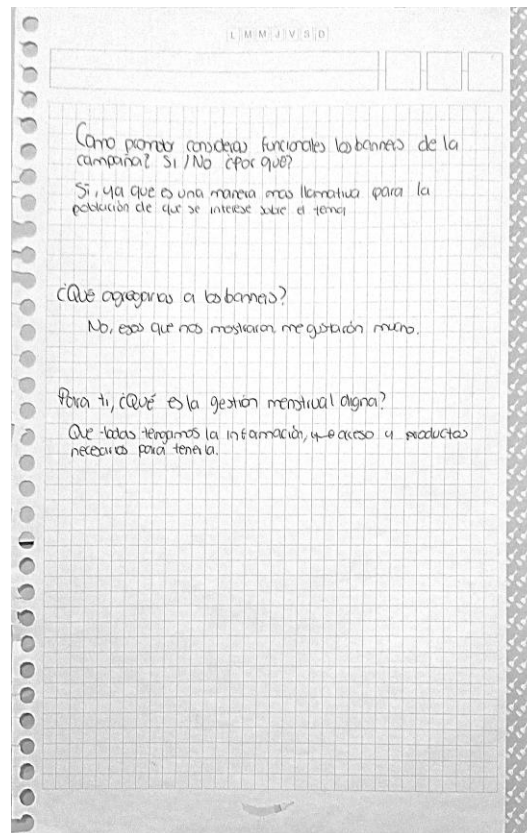 L M M J V S D
Como promotor consideras funcionales los banners de la
campaña? Si / No ¿por qué?
Si, ya que es una manera mas llamativa para la
población de que se interese sobre el tema
¿Qué agregarias a los banners?
No, esos que nos mostraron me gustarón mucho.
Para ti, ¿Qué es la gestión menstrual digna?
Que todas tengamos la información, acceso y productos
necesarios para tenerla.